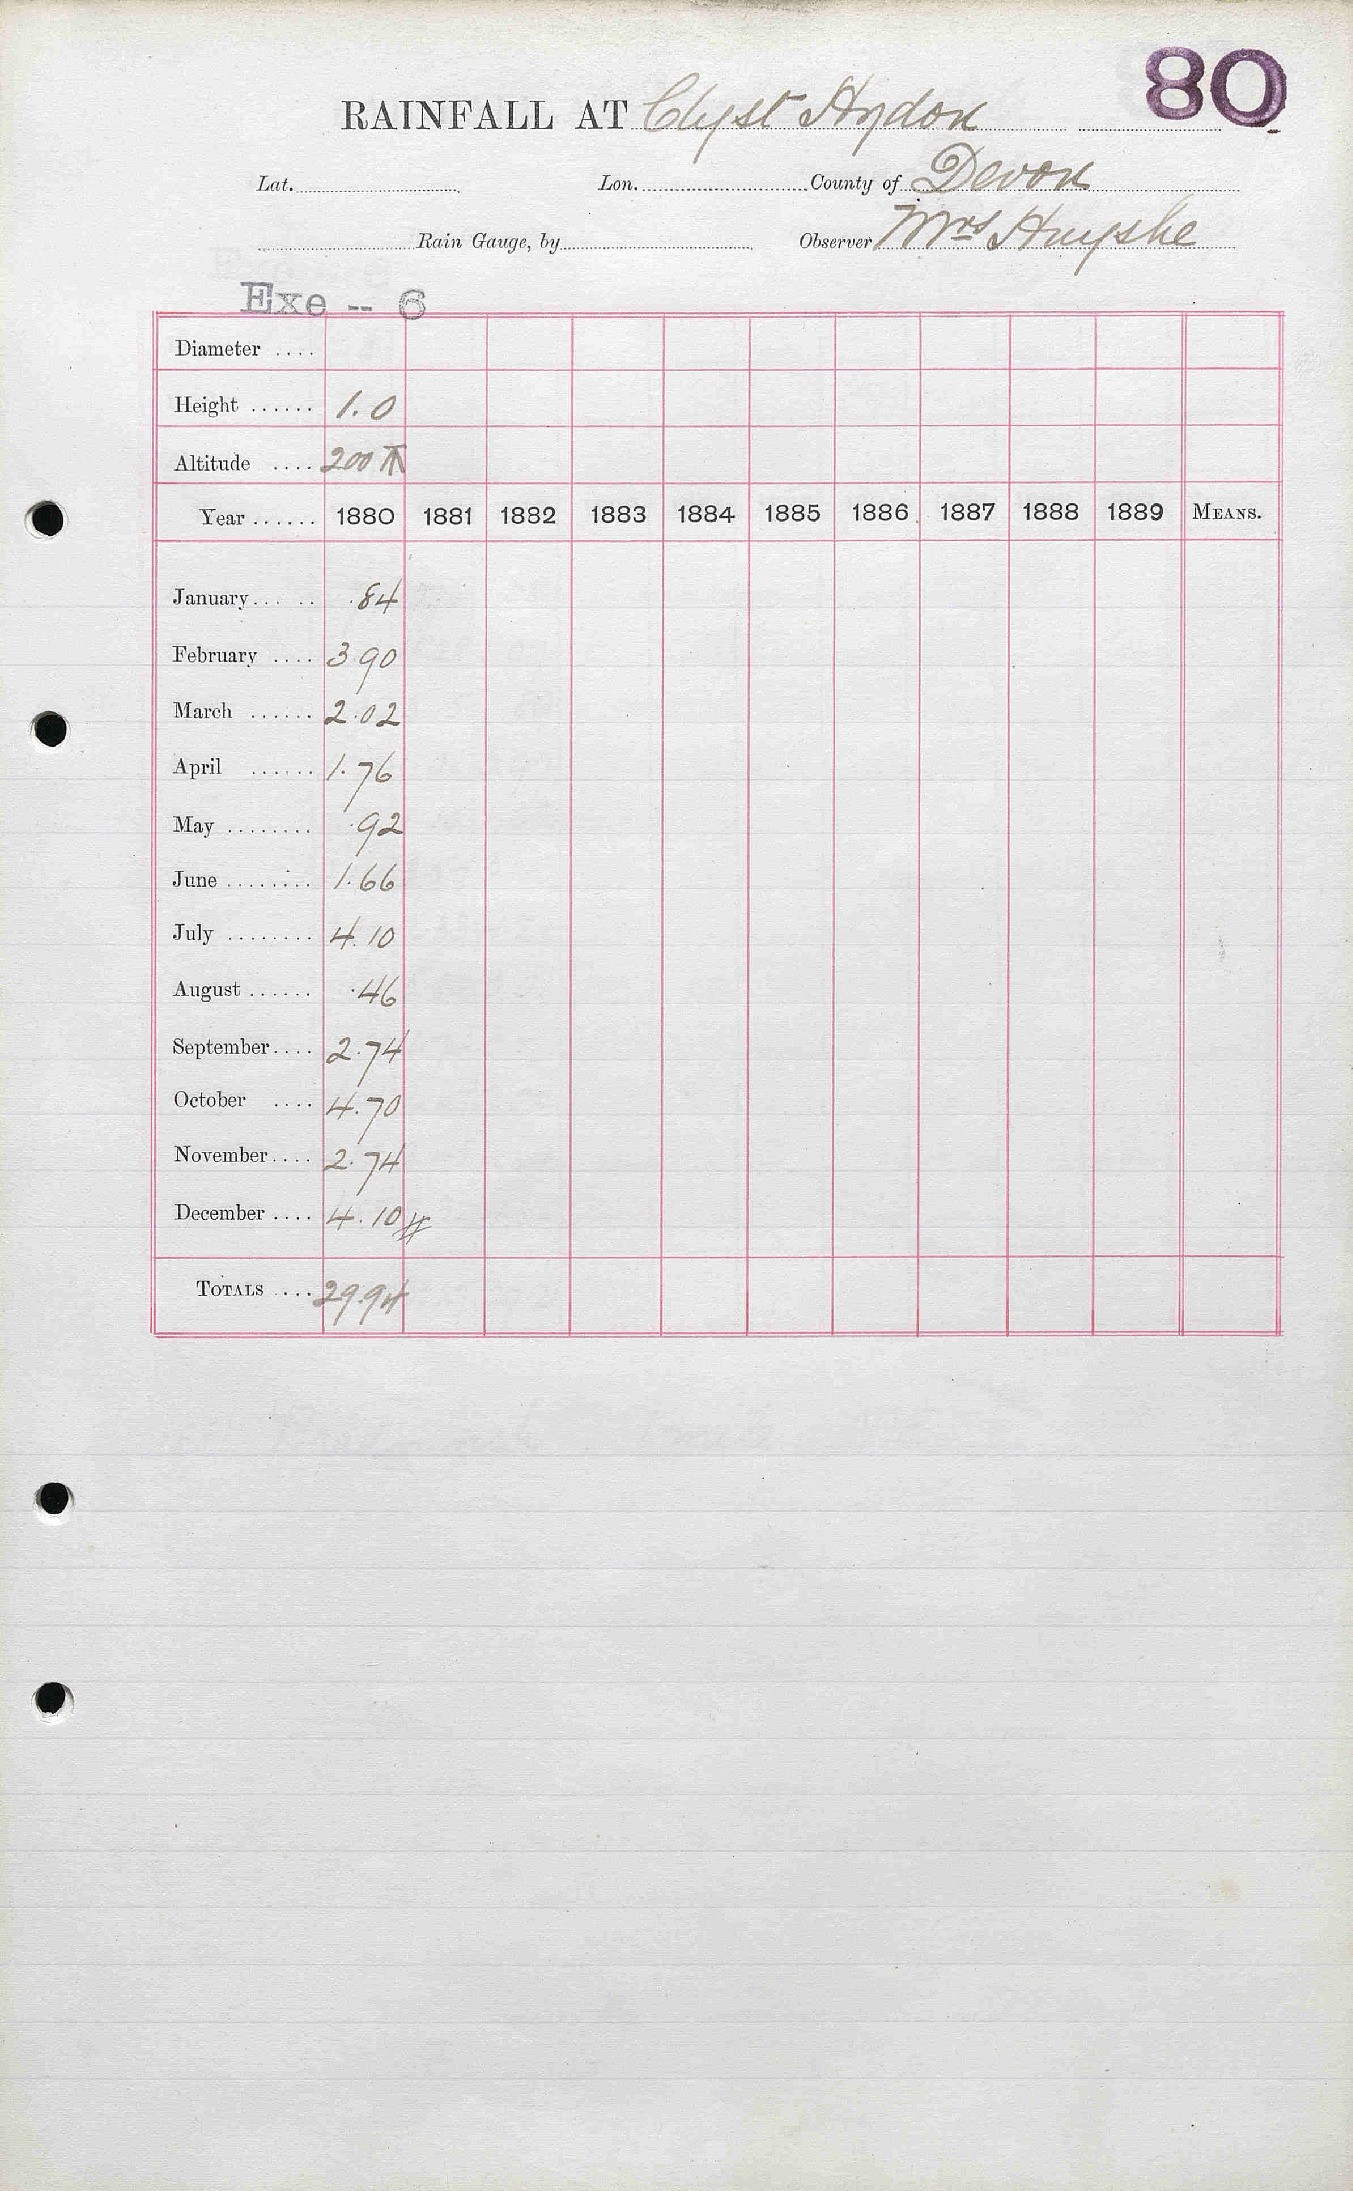 80
RAINFALL AT Clyst Hydon
Lat. Lon. County of Devon
Rain Gauge, by Observer Mrs Huyshe
Exe -- 6
Diameter ....
Height ...... 1.0
Altitude .... 200
Year ...... 1880 1881 1882 1883 1884 1885 1886 1887 1888 1889 MEANS.
January ... .. .84
February .... 3 90
March ...... 2.02
April ...... 1.76
May ........ .92
June ........ 1.66
July ........ 4.10
August ...... .46
September.... 2.74
October .... 4.70
November.... 2.74
December .... 4.10 #
TOTALS .... 29.94